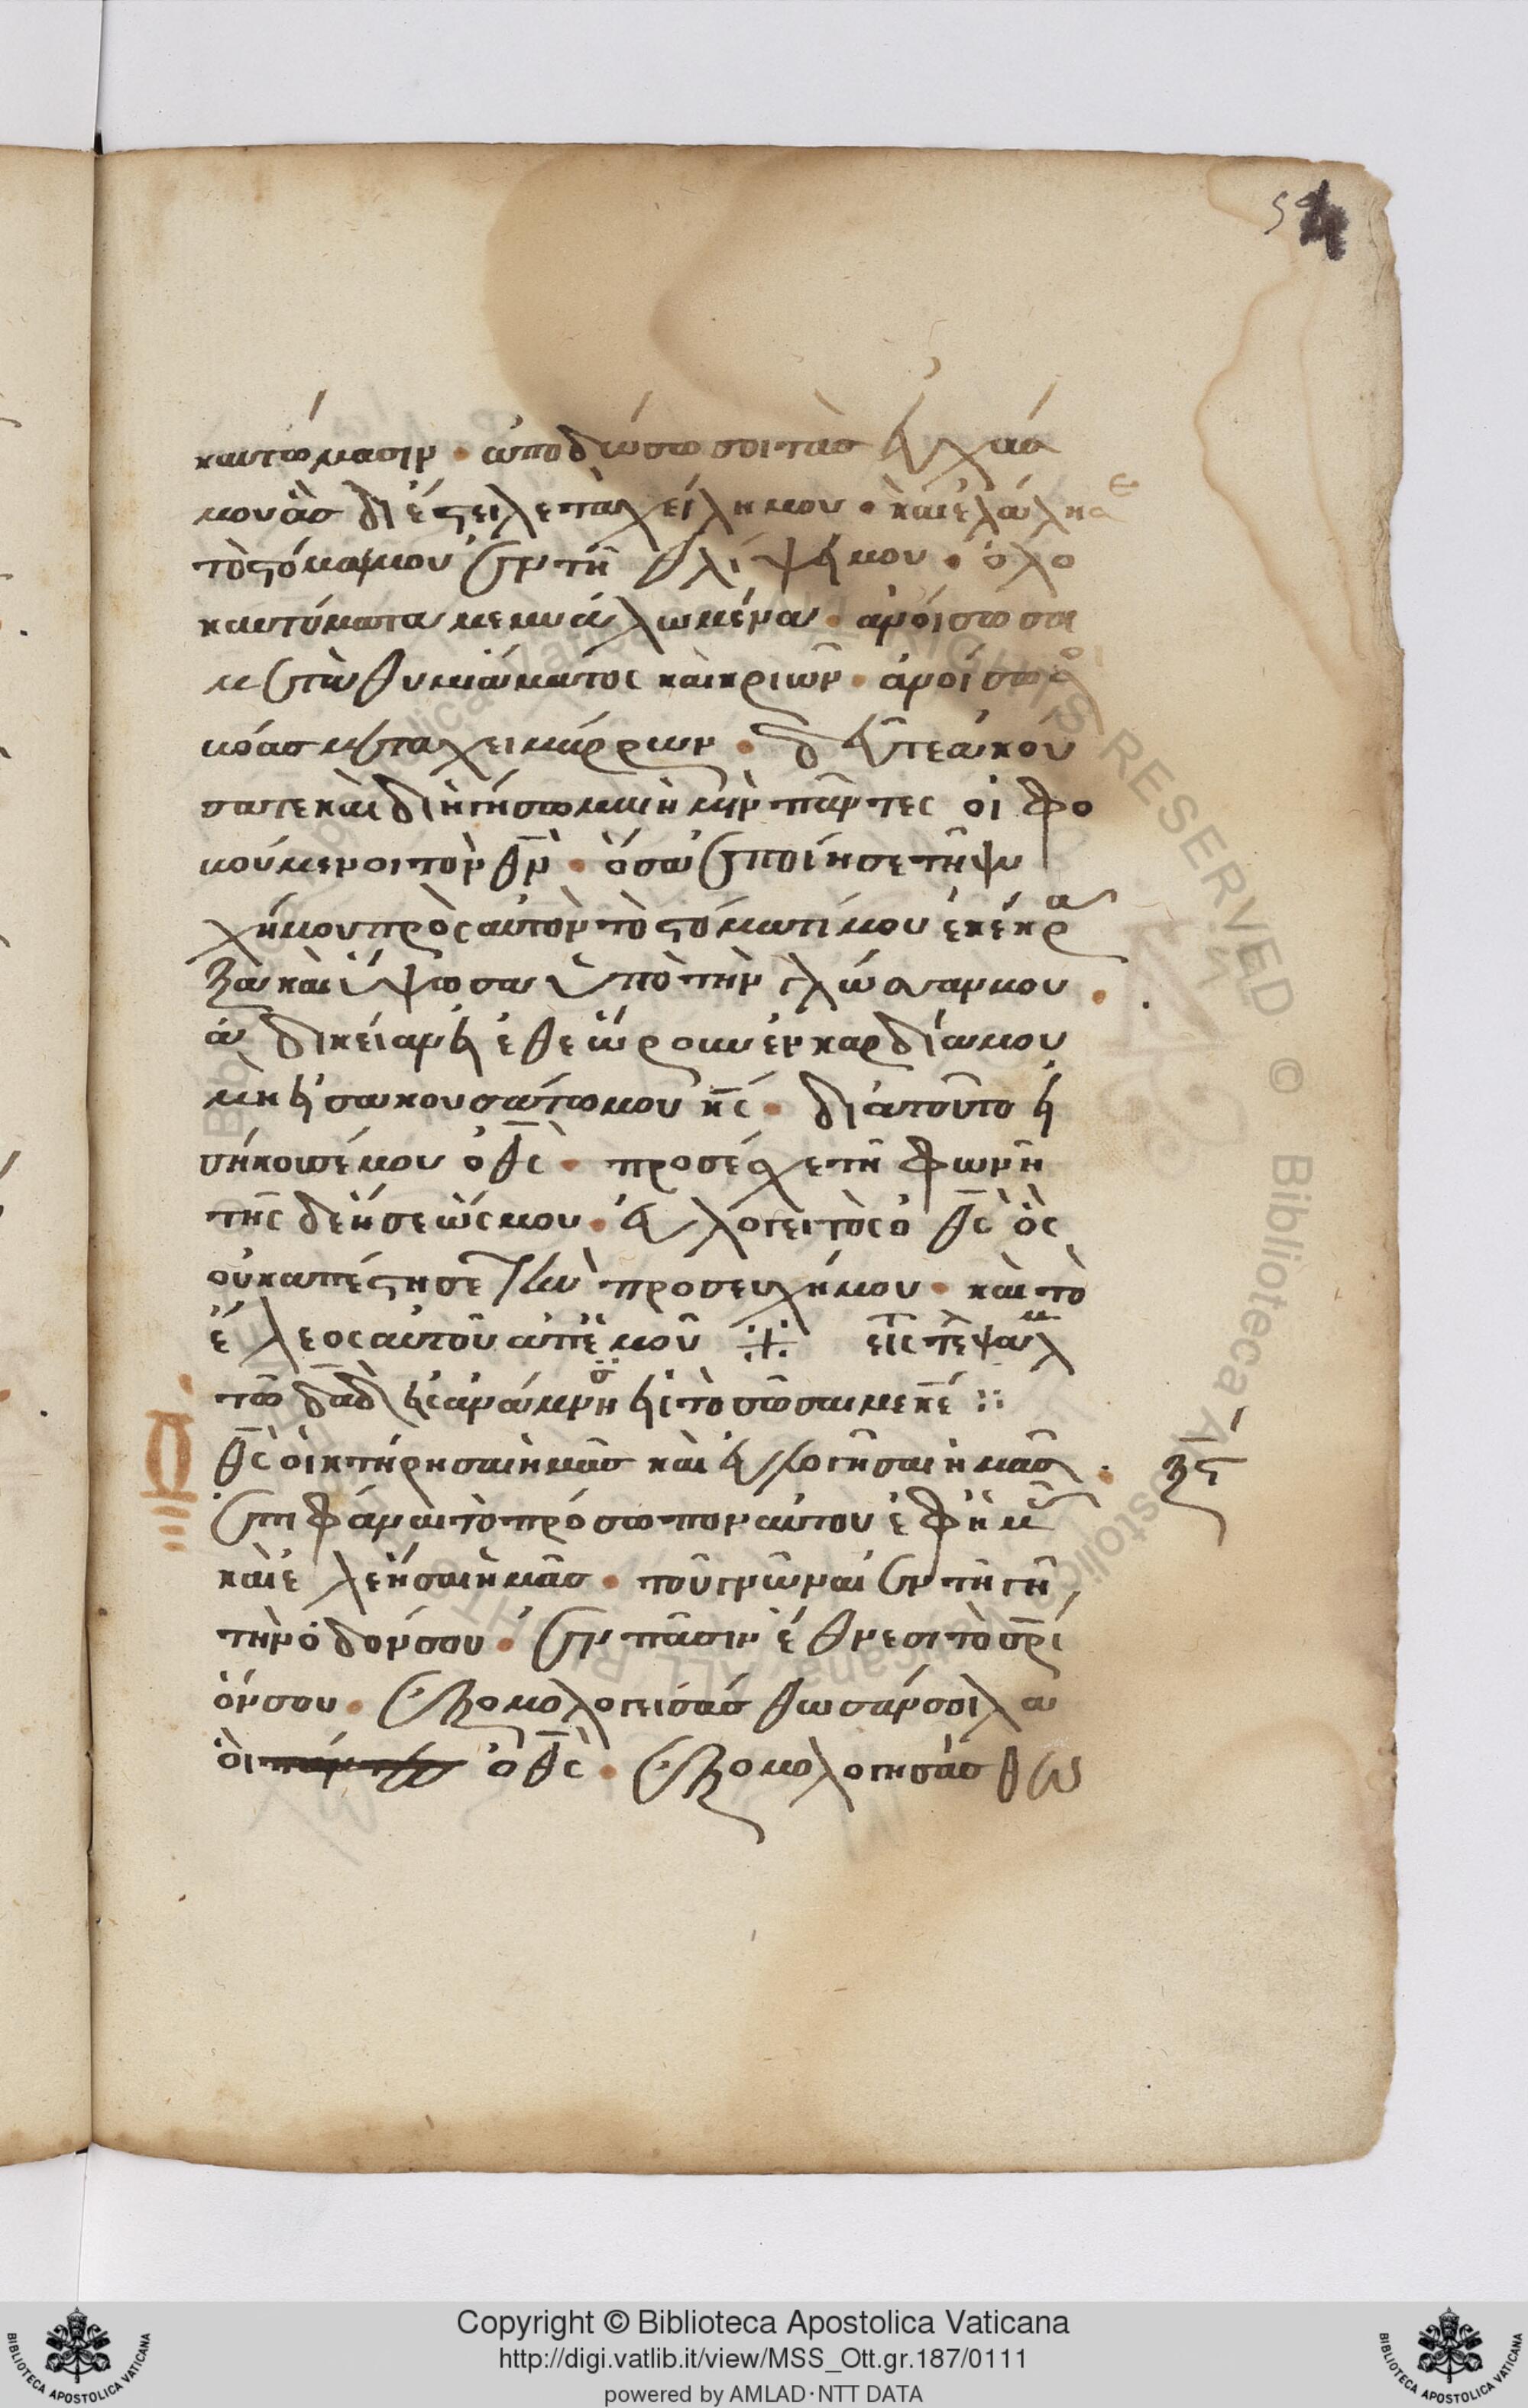 54
καυτώμασιν · ἀποδώσω σοι τὰς εὐχάς
μου ἃς διέστειλε τὰ χείλη μου · καὶ ἐλάλησε
τὸ στόμα μου ἐν τῇ θλίψει μου · ὁλο
καυτόματα μεμυαλωμένα · ἀνοίσω σοι
μετὰ θυμιάματος καὶ κριῶν · ἀνοίσω σοι
βόας μετὰ χειμάρρων · δεῦτε ἀκού
σατε καὶ διηγήσωμαι ἡμῖν πάντες οἱ φο
βούμενοι τὸν θν̅ · ὅσα ἐποίησε τῇ ψυ
χῇ μου πρὸς αὐτὸν τὸ στόματί μου ἐκέκρα
ξα καὶ ὕψωσα ὑπὸ τὴν γλώσσαν μου ·
ἀδικείαν εἰ ἐθεώρουν ἐν καρδία μου
μὴ εἰσακουσάτω μου κς̅ · διὰ τοῦτο εἰ
σήκουσέ μου ὁ θς̅ · προσέσχε τῇ φωνῇ
τῆς δεήσεώς μου · εὐλογειτὸς ὁ θς̅ ὃς
οὐκ ἀπέστησε τὴν προσευχή μου · καὶ τὸ
ἔλεος αὐτοῦ ἀπ' ἐμοῦ ⁜ εἰς τ τε ψαλμ
τῶ δαδ̅ εἰς ἀνάμνησι εἰς τὸ σῶσαι με κε̅ ⁘
Ο θς̅ οἰκτήρησαι ἡμᾶς καὶ εὐλογῆσαι ἡμᾶς · ξς̅
ἐπιφάναι τὸ πρόσωπον αὐτοῦ ἐφ' ἡμᾶς
καὶ ἐλεήσαι ἡμᾶς · τοῦ γνῶναι ἐν τῇ γῇ
τὴν ὁδόν σου · ἐν πᾶσιν ἔθνεσι τὸ σρί
όν σου · ἐξομολογεισάσθωσάν σοι λα
οὶ ὁ θς̅ · ἐξομολογησάσθω
Copyright © Biblioteca Apostolica Vaticana
http://digi.vatlib.it/view/MSS_Ott.gr.187/0111
powered by AMLAD·NTT DATA